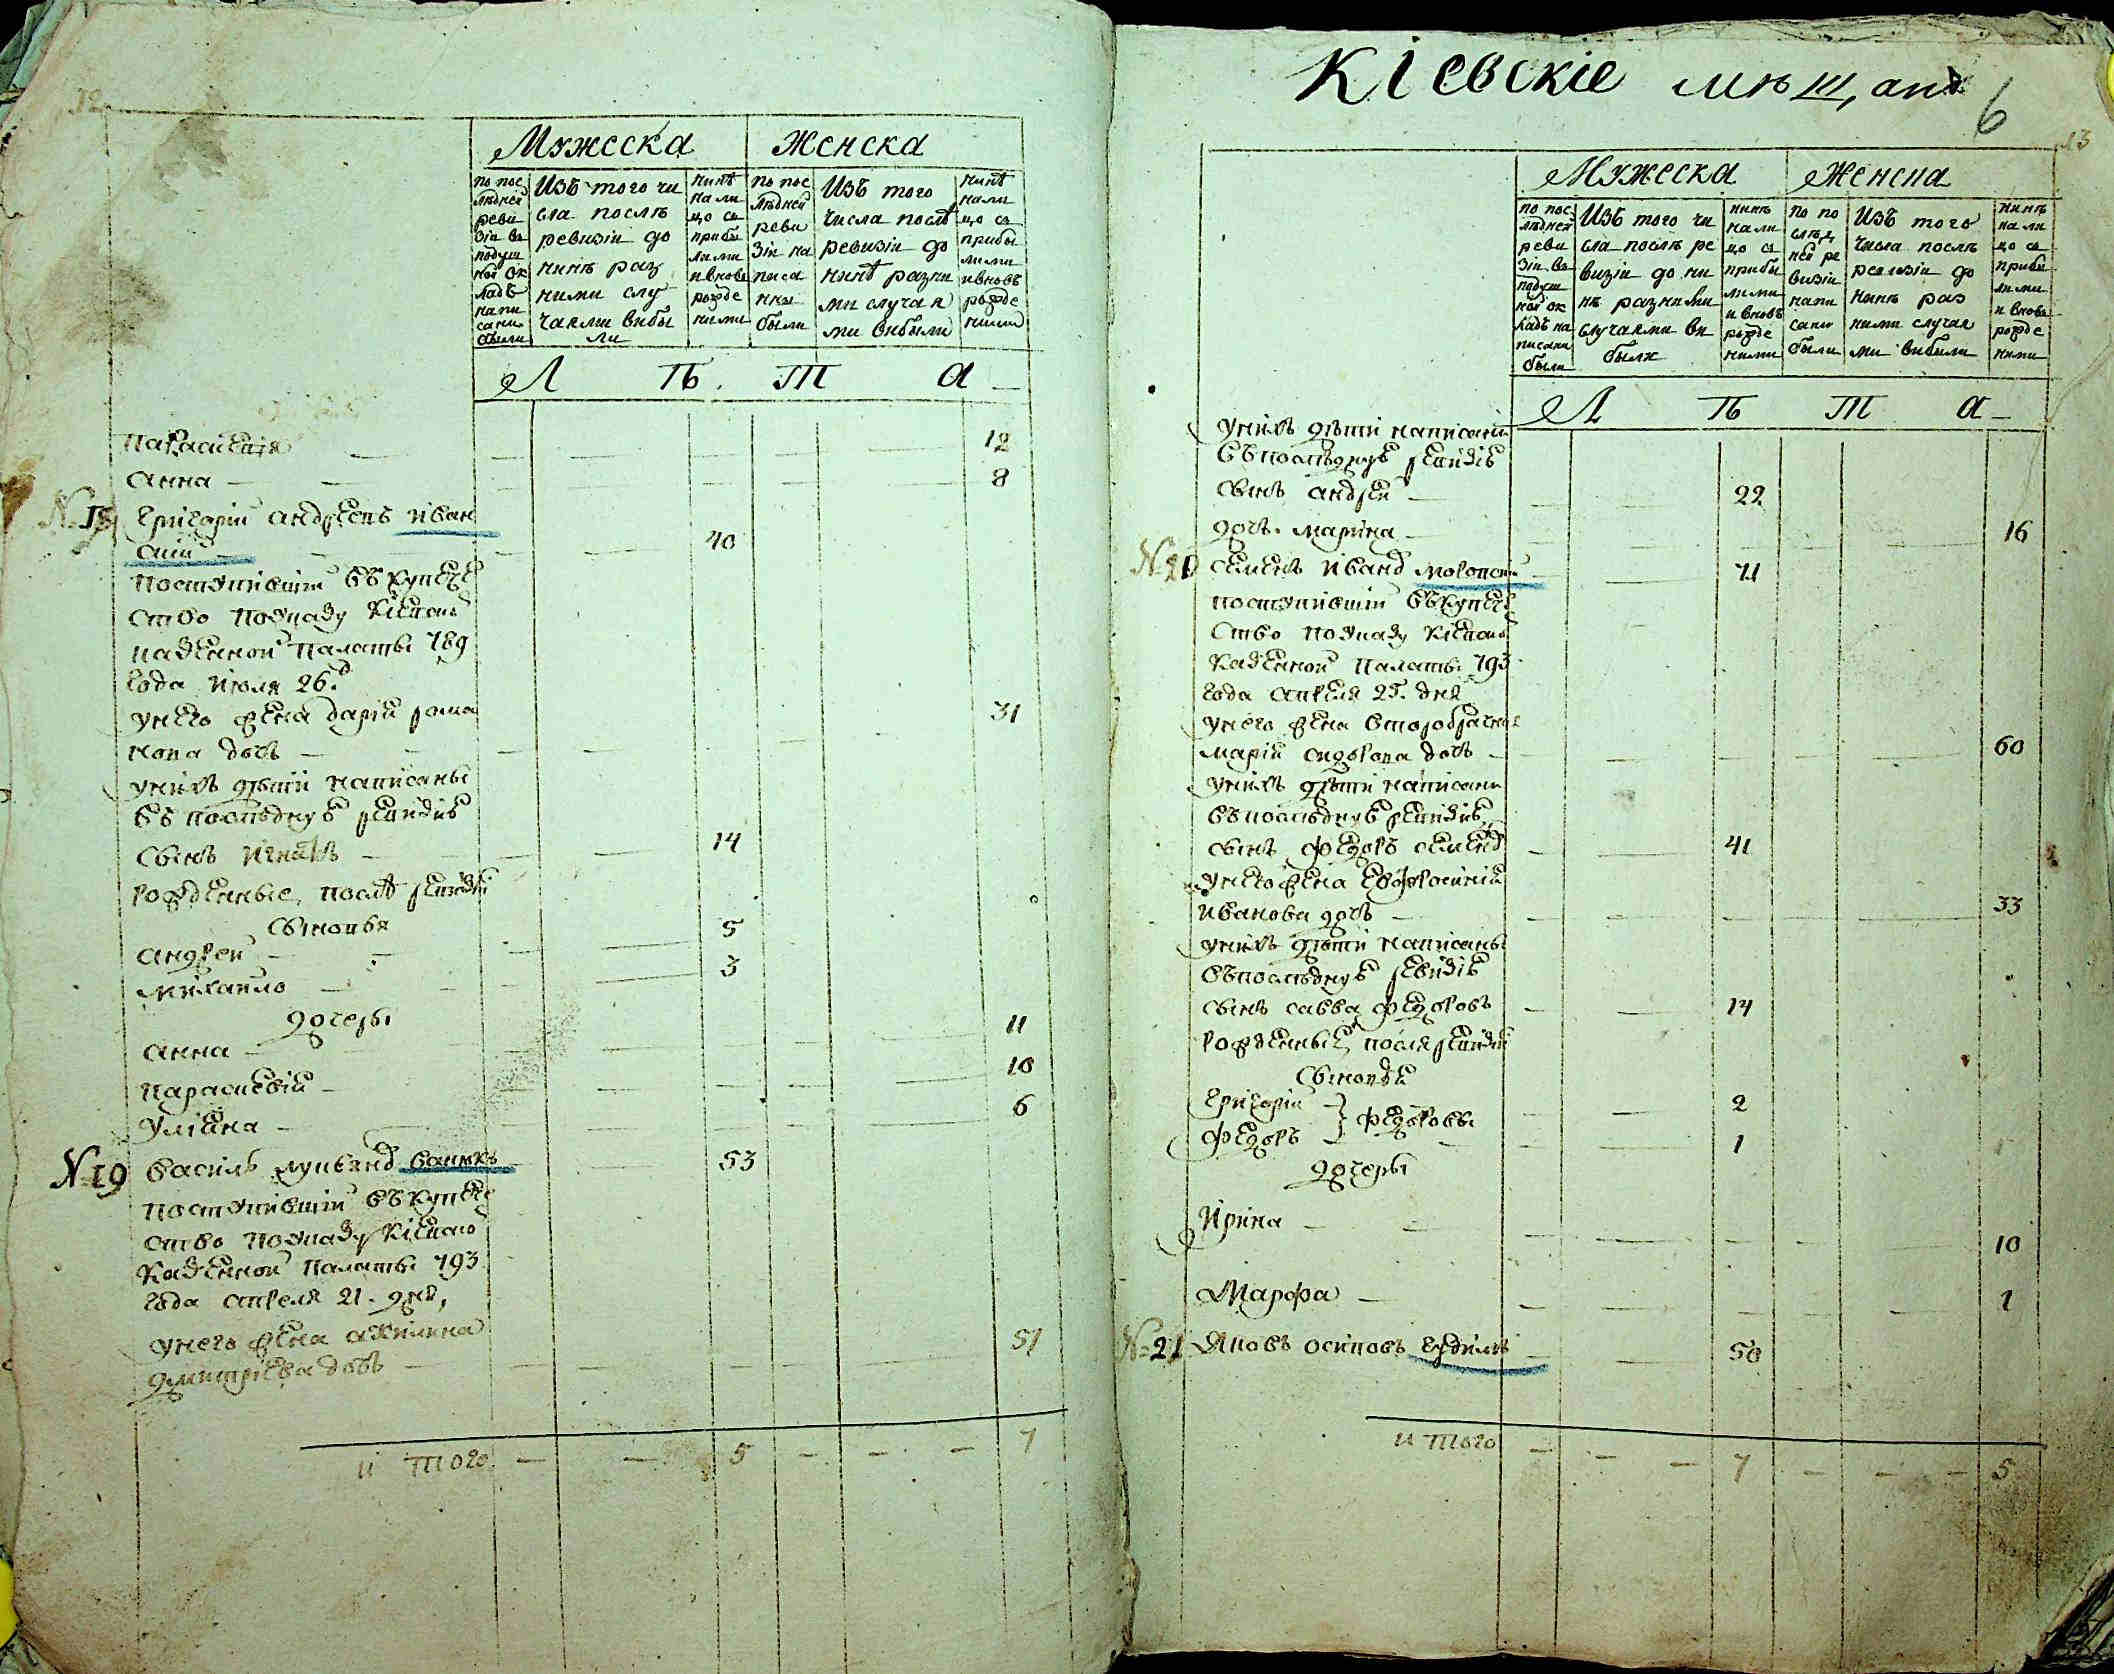 12
Мужеска Женска
по пос
лѣдней
реви
зіи въ
подуш
ной ок
ладъ
напи
сани
были
Изъ того чи
сла послѣ
ревизіи до
нинѣ раз
ними слу
чаями вибы
ли
нинѣ
нали
цо съ
прибы
лими
и вновь
рожде
ними
по пос
лѣдней
реви
зіи на
писа
ны
были
Изъ того
числа послѣ
ревизіи до
нинѣ разни
ми случая
ми вибыли
нинѣ
нали
цо съ
прибы
лими
и вновъ
рожде
ними
Л Ѣ Т А
Параскевія 12
Анна 8
№ 18 Григорій Андреевъ Иван
40
поступившій въ купече
ство поуказу Кіевской
казенной палаты 789
года июля 26.
унего жена Дарія Рома
нова дочь 31
унихъ дѣти написаны
въ последнуй ревизіи
сынъ Игнатъ 14
рожденные после ревизіи
сыновья
Андрей 5
Михайло 3
дочери
Анна 11
Параскевія 10
Улиана 6
№ 19 Василь 53
поступившій въ купече
ство поуказу Кіевской
казенной палаты 793
года апреля 21. дня,
унего жена Акилина
Дмитріева дочь 51
и того 5 7
Кіевскіе мѣщане
6
13
Мужеска Женска
по пос
лѣдней
реви
зіи въ
подуш
ной ок
ладъ на
писани
были
Изъ того чи
сла послѣ ре
визіи до ни
нѣ разними
случаями ви
были
нинѣ
нали
цо съ
прибы
лими
и вновъ
рожде
ними
по по
слѣд
ней ре
визіи
напи
сани
были
Изъ того
числа послѣ
ревизіи до
нинѣ раз
ними случая
ми вибыли
нинѣ
нали
цо съ
прибы
лими
и вновь
рожде
ними
Л Ѣ Т А
унихъ дѣти написани
въ последнуй ревизіи
сынъ Андрей 22
дочь Марина 16
№ 20 Семенъ Иванов 71
поступившій въ купече
ство поуказу Кіевской
казенной палаты 793
года апреля 25. дня
унего жена второбрачная
Марія Сидорова дочь 60
унихъ дѣти написани
въ последнуй ревизіи
сынъ Федоръ Семенов 41
унего жена Евфросинія
Иванова дочь 33
унихъ дѣти написаны
въ последнуй ревизіи
сынъ Савва Федоровъ 14
рожденные после ревизіи
сыновья
Григорій 2
Федоръ } Федоровы 1
дочеры
Ирина 10
Марфа 1
№ 21 Яковъ Осиповъ 50
и того 7 5